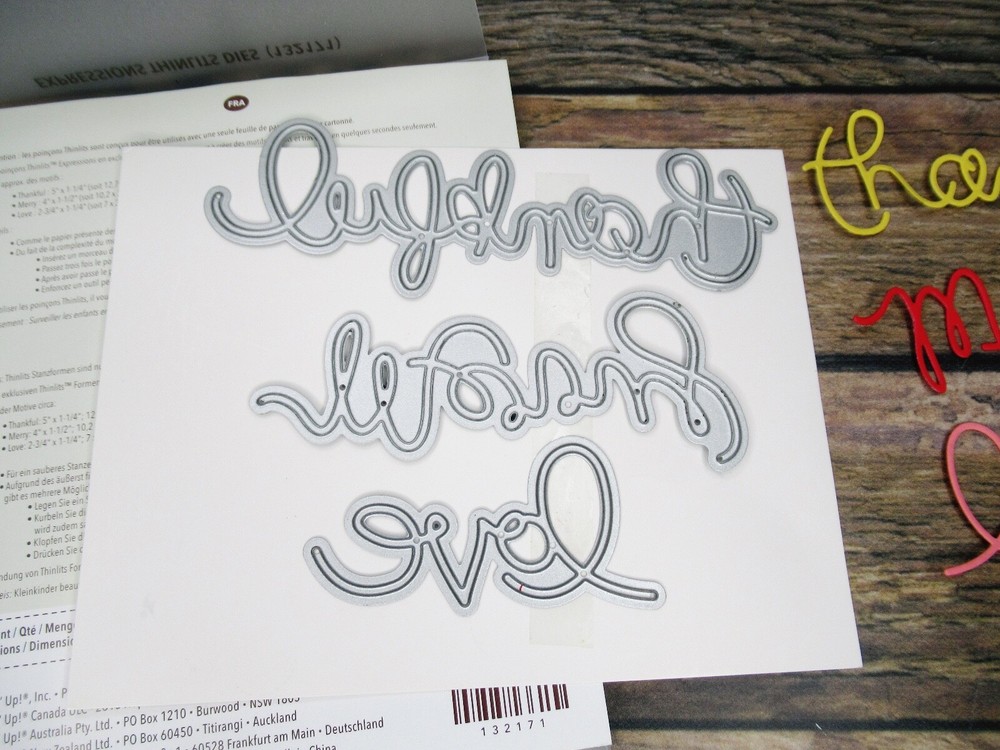 EXPRESSIONS THINLITS DIES (132171)
FRA
ention : les poinçons Thinlits sont conçus pour être utilisés avec une seule feuille de
cartonné.
en quelques secondes seulement.
poinçons Thinlits™ Expressions
approx. des motifs
• Thankful: 5" x 1-1/4" (soit 12,7
• Merry : 4" x 1-1/2" (soit 10,2 x
• Love : 2-3/4" x 1-1/4" (soit 7 x
• Comme le papier présente de
• Ou fait de la complexité du m
• Insérez un morceau d
• Passez trois fois le po
• Après avoir passé le p
• Enfoncez un outil p
tiliser les poinçons Thinlits, il vou
sement : Surveiller les enfants e
s: Thinlits Stanzformen sind n
exklusiven Thinlits™ Formen
der Motive circa:
• Thankful: 5" x 1-1/4"; 12
• Merry: 4" x 1-1/2"; 10,2
• Love: 2-3/4" x 1-1/4"; 7
• Für ein sauberes Stanze
• Aufgrund des äußerst f
gibt es mehrere Möglic
• Legen Sie ein
• Kurbeln Sie d
wird zudem s
• Klopfen Sie d
• Drücken Sie d
ndung von Thinlits For
eis: Kleinkinder beau
nt / Qté / Meng
ions / Dimensio
thankful
merry
love
tha
m
l
Up!®, Inc. • P
Up!® Canada
Up!® Australia Pty. Ltd. • PO Box 1210 • Burwood • NSW 1805
New Zealand Ltd. • PO Box 60450 • Titirangi • Auckland
60528 Frankfurt am Main • Deutschland
China
132171